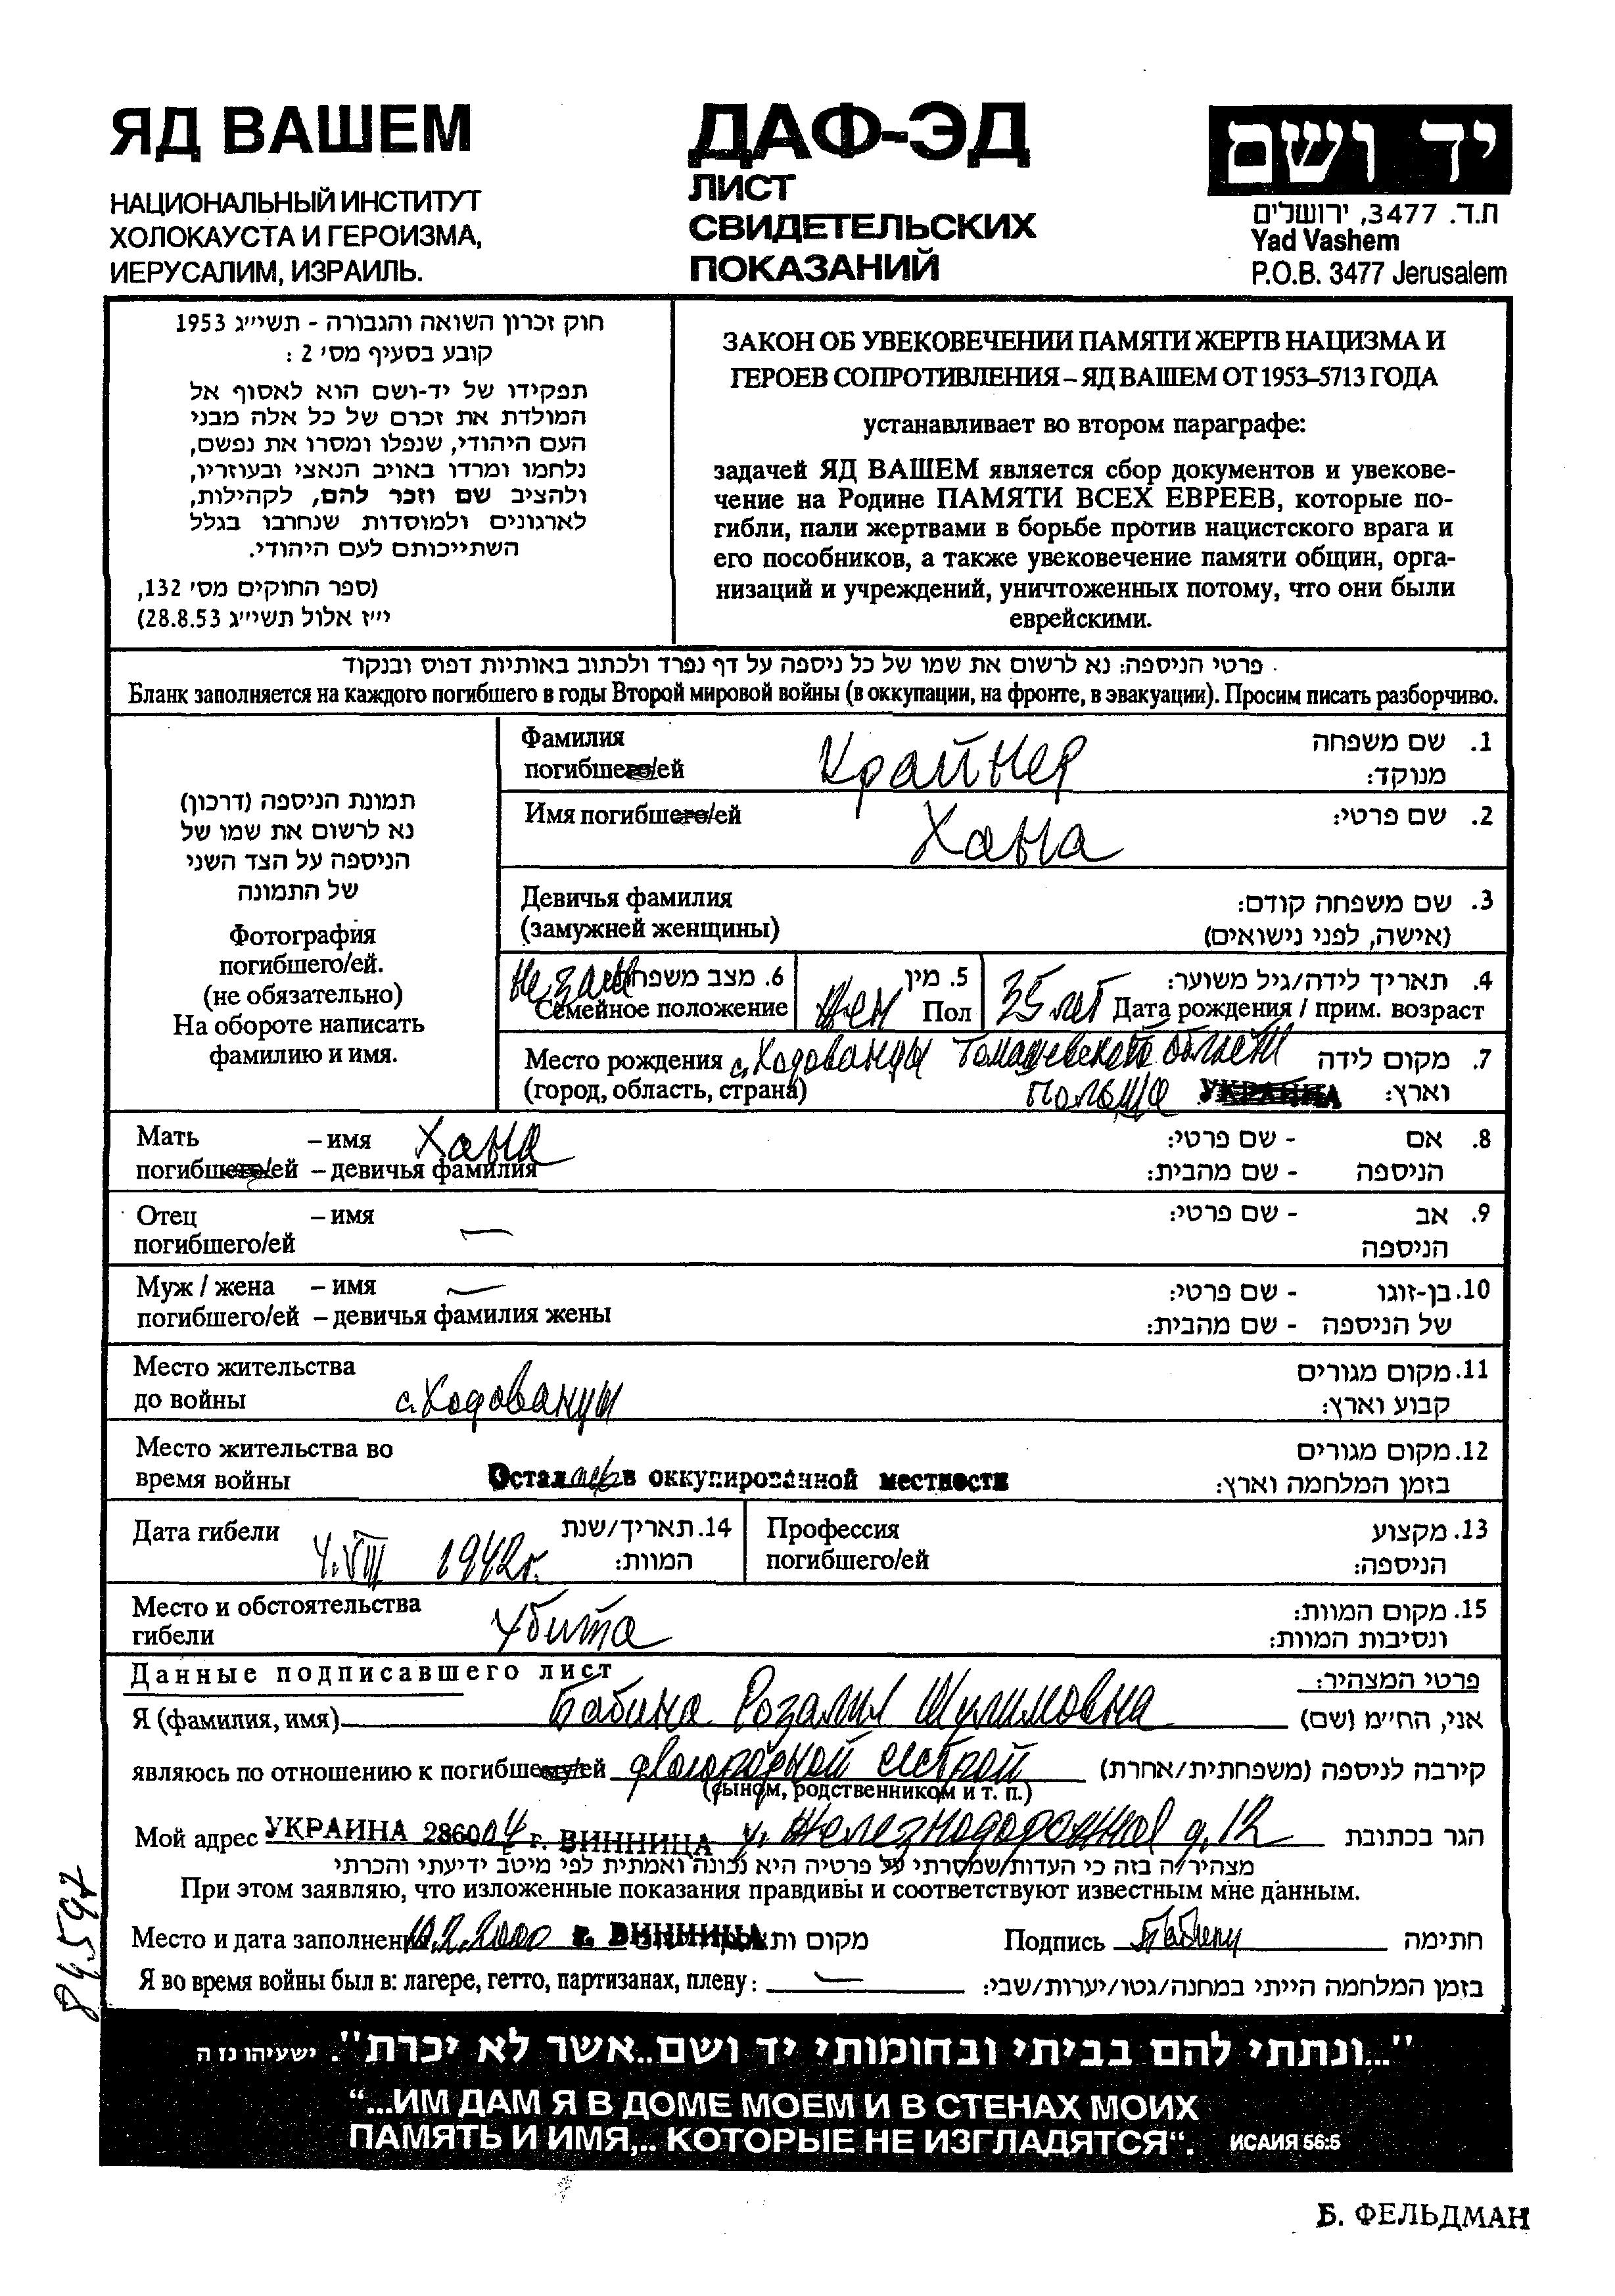 ЯД ВАШЕМ
НАЦИОНАЛЬНЫЙ ИНСТИТУТ
ХОЛОКАУСТА И ГЕРОИЗМА,
ИЕРУСАЛИМ, ИЗРАИЛЬ.
ДАФ-ЭД
ЛИСТ
СВИДЕТЕЛЬСКИХ
ПОКАЗАНИЙ
יד ושם
ת.ד. 3477, ירושלים
Yad Vashem
P.O.B. 3477 Jerusalem
חוק זכרון השואה והגבורה - תשי״ג 1953
קובע בסעיף מס׳ 2 :
תפקידו של יד-ושם הוא לאסוף אל
המולדת את זכרם של כל אלה מבני
העם היהודי, שנפלו ומסרו את נפשם,
נלחמו ומרדו באויב הנאצי ובעוזריו,
ולהציב שם וזכר להם, לקהילות,
לארגונים ולמוסדות שנחרבו בגלל
השתייכותם לעם היהודי.
(ספר החוקים מס׳ 132,
י״ז אלול תשי״ג 28.8.53)
ЗАКОН ОБ УВЕКОВЕЧЕНИИ ПАМЯТИ ЖЕРТВ НАЦИЗМА И
ГЕРОЕВ СОПРОТИВЛЕНИЯ – ЯД ВАШЕМ ОТ 1953–5713 ГОДА
устанавливает во втором параграфе:
задачей ЯД ВАШЕМ является сбор документов и увекове-
чение на Родине ПАМЯТИ ВСЕХ ЕВРЕЕВ, которые по-
гибли, пали жертвами в борьбе против нацистского врага и
его пособников, а также увековечение памяти общин, орга-
низаций и учреждений, уничтоженных потому, что они были
еврейскими.
פרטי הניספה: נא לרשום את שמו של כל ניספה על דף נפרד ולכתוב באותיות דפוס ובנקוד
Бланк заполняется на каждого погибшего в годы Второй мировой войны (в оккупации, на фронте, в эвакуации). Просим писать разборчиво.
תמונת הניספה (דרכון)
נא לרשום את שמו של
הניספה על הצד השני
של התמונה
Фотография
погибшего/ей.
(не обязательно)
На обороте написать
фамилию и имя.
Фамилия Крайнер 1. שם משפחה
погибшего/ей מנוקד:
Имя погибшего/ей Хана 2. שם פרטי:
Девичья фамилия 3. שם משפחה קודם:
(замужней женщины) (אישה, לפני נישואים)
не зам 6. מצב משפחתי
Семейное положение
жен 5. מין
Пол
35 лет 4. תאריך לידה/גיל משוער:
Дата рождения / прим. возраст
Место рождения с. Ходованцы Томашевской области 7. מקום לידה
(город, область, страна) Польша УКРАИНА וארץ:
Мать – имя Хана - שם פרטי: 8. אם
погибшего/ей – девичья фамилия - שם מהבית: הניספה
Отец – имя — - שם פרטי: 9. אב
погибшего/ей הניספה
Муж / жена – имя — - שם פרטי: 10. בן-זוגו
погибшего/ей – девичья фамилия жены - שם מהבית: של הניספה
Место жительства 11. מקום מגורים
до войны с. Ходованцы קבוע וארץ:
Место жительства во 12. מקום מגורים
время войны Осталась в оккупированной местности בזמן המלחמה וארץ:
Дата гибели 4.VIII 1942г. 14. תאריך/שנת
המוות:
Профессия 13. מקצוע
погибшего/ей הניספה:
Место и обстоятельства 15. מקום המוות:
гибели Убита ונסיבות המוות:
Данные подписавшего лист פרטי המצהיר:
Я (фамилия, имя) Бабина Розалия Шулимовна אני, הח״מ (שם)
являюсь по отношению к погибшему/ей двоюродной сестрой קירבה לניספה (משפחתית/אחרת)
(сыном, родственником и т. п.)
Мой адрес УКРАИНА 286004 г. ВИННИЦА у. Железнодорожная д. 12 הגר בכתובת
מצהיר/ה בזה כי העדות שמסרתי על פרטיה היא נכונה ואמתית לפי מיטב ידיעתי והכרתי
При этом заявляю, что изложенные показания правдивы и соответствуют известным мне данным.
Место и дата заполнения 10.2.2000 г. ВИННИЦА מקום Подпись חתימה
Я во время войны был в: лагере, гетто, партизанах, плену: — בזמן המלחמה הייתי במחנה/גטו/יערות/שבי:
"...ונתתי להם בביתי ובחומותי יד ושם..אשר לא יכרת". ישעיהו נז ה
“...ИМ ДАМ Я В ДОМЕ МОЕМ И В СТЕНАХ МОИХ
ПАМЯТЬ И ИМЯ,.. КОТОРЫЕ НЕ ИЗГЛАДЯТСЯ“. ИСАИЯ 56:5
Б. ФЕЛЬДМАН